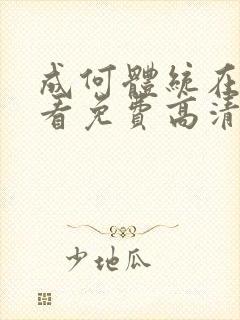 成何體統在
看免費高清
少地瓜